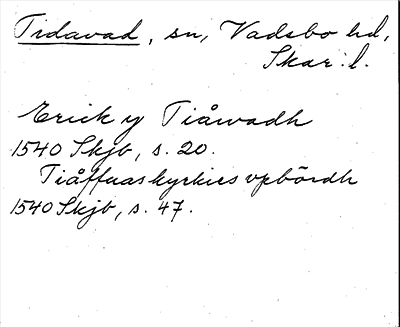 Tidavad, sn, Vadsbo hd,
Skar. l.
Erick y Tiåwadh
1540 Skjb, s. 20.
Tiåffuaskyrkies vpbördh
1540 Skjb, s. 47.